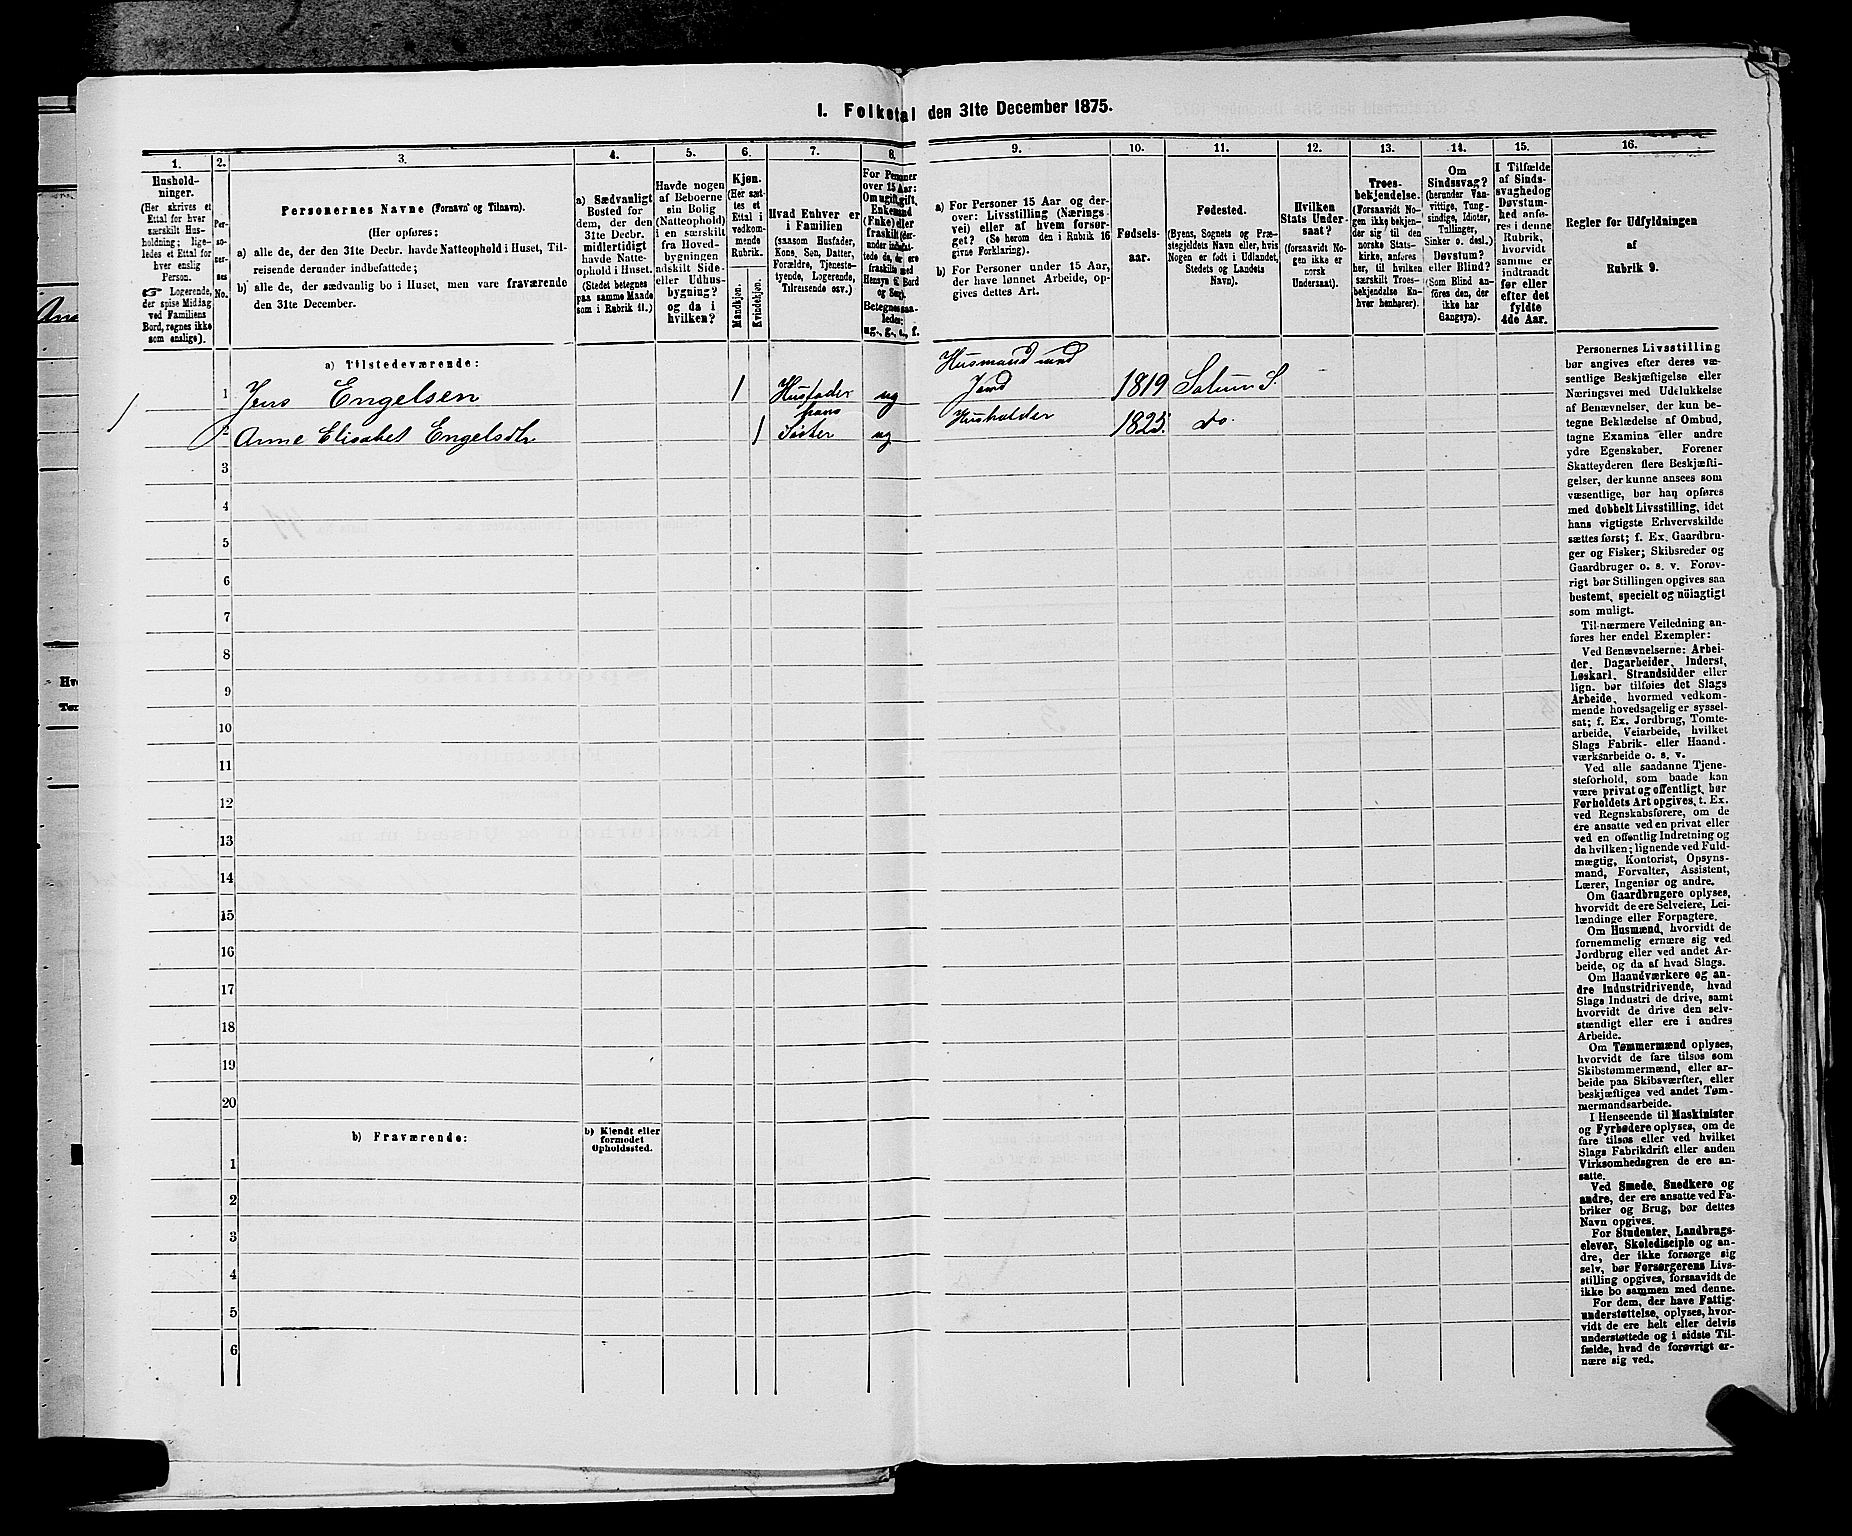 I. Folketal den 31te December 1875.
1.
Hushold-
ninger.
(Her skrives et
Ettal for hver
særskilt Hus-
holdning; lige-
ledes et Ettal for
hver enslig
Person.
☞ Logerende,
der spise Middag
ved Familiens
Bord, regnes ikke
som enslige).
2.
Per-
so-
ner-
nes
No.
3.
Personernes Navne (Fornavn og Tilnavn).
(Her opføres:
a) alle de, der den 31te Decbr. havde Natteophold i Huset, Til-
reisende derunder indbefattede;
b) alle de, der sædvanlig bo i Huset, men vare fraværende
den 31te December.
4.
a) Sædvanligt
Bosted for
dem, der den
31te Decbr.
midlertidigt
havde Natte-
ophold i Huset.
(Stedet betegnes
paa samme Maade
som i Rubrik 11.)
5.
Havde nogen
af Beboerne
sin Bolig
(Natteophold)
i en særskilt
fra Hoved-
bygningen
adskilt Side-
eller Udhus-
bygning?
og da i
hvilken?
6.
Kjøn.
(Her sæt-
tes et
Ettal i
vedkom-
mende
Rubrik.
Mandkjøn.
Kvindekjøn.
7.
Hvad Enhver er
i Familien
(saasom Husfader,
Kone, Søn, Datter,
Forældre, Tjeneste-
tyende, Logerende,
Tilreisende osv.)
8.
For Personer
over 15 Aar:
Om ugift, gift,
Enkemand
(Enke) eller
fraskilt
Betegnes saa-
ledes:
ug., g., e., f.
9.
a) For Personer 15 Aar og der-
over: Livsstilling (Nærings-
vei) eller af hvem forsør-
get? (Se herom den i Rubrik 16
givne Forklaring).
b) For Personer under 15 Aar,
der have lønnet Arbeide, op-
gives dettes Art.
10.
Fødsels-
aar.
11.
Fødested.
(Byens, Sognets og Præ-
stegjeldets Navn eller, hvis
Nogen er født i Udlandet,
Stedets og Landets
Navn).
12.
Hvilken
Stats Under-
saat?
(forsaavidt No-
gen ikke er
norsk
Undersaat).
13.
Troes-
bekjendelse.
(Forsaavidt No-
gen ikke bekjen-
der sig til den
norske Stats-
kirke, anføres
her, til hvilken
særskilt Troes-
bekjendelse En-
hver henhører).
14.
Om
Sindssvag?
(herunder Van-
vittige, Tung-
sindige, Idioter,
Tullinger,
Sinker o. desl.)
Døvstum?
eller Blind?
(Som Blind an-
føres den, der
ikke har
Gangsyn).
15.
I Tilfælde
af Sinds-
svaghed og
Døvstum-
hed anfø-
res i denne
Rubrik,
hvorvidt
samme er
indtraadt
før eller
efter det
fyldte
4de Aar.
16.
Regler for Udfyldningen
af
Rubrik 9.
a) Tilstedeværende:
Husmand med
1 Jens Engelsen 1 Husfader ug Jord 1819 Solum S.
hans Husholder
1 2 Anne Elisabet Engelsdtr 1 Søster ug 1825 do.
3
4
5
6
7
8
9
10
11
12
13
14
15
16
17
18
19
20
b) Fraværende:
b) Kjendt eller
formodet
Opholdssted.
1
2
3
4
5
6
Personernes Livsstilling
bør angives efter deres væ-
sentlige Beskjæftigelse eller
Næringsvei med Udelukkelse
af Benævnelser, der kun be-
tegne Beklædelse af Ombud,
tagne Examina eller andre
ydre Egenskaber. Forener
Skatteyderen flere Beskjæfti-
gelser, der kunne ansees som
væsentlige, bør han opføres
med dobbelt Livsstilling, idet
hans vigtigste Erhvervskilde
sættes først; f. Ex. Gaardbru-
ger og Fisker; Skibsreder og
Gaardbruger o. s. v. Forøv-
rigt bør Stillingen opgives saa
bestemt, specielt og nöiagtigt
som muligt.
Til nærmere Veiledning an-
føres her endel Exempler:
Ved Benævnelserne: Arbei-
der, Dagarbeider, Inderst,
Løskarl, Strandsidder eller
lign. bør tilføies det Slags
Arbeide, hvormed vedkom-
mende hovedsagelig er syssel-
sat; f. Ex. Jordbrug, Tomte-
arbeide, Veiarbeide, hvilket
Slags Fabrik- eller Haand-
værksarbeide o. s. v.
Ved alle saadanne Tjene-
steforhold, som baade kan
være privat og offentligt, bør
Forholdets Art opgives, t. Ex.
ved Regnskabsførere, om de
ere ansatte ved en privat eller
ved en offentlig Indretning og
da hvilken; lignende ved Fuld-
mægtig, Kontorist, Opsyns-
mand, Forvalter, Assistent,
Lærer, Ingeniør og andre.
Om Gaardbrugere oplyses,
hvorvidt de ere Selveiere, Lei-
lændinge eller Forpagtere.
Om Husmænd, hvorvidt de
fornemmelig ernære sig ved
Jordbrug eller ved andet Ar-
beide, og da af hvad Slags.
Om Haandværkere og an-
dre Industridrivende, hvad
Slags Industri de drive, samt
hvorvidt de drive den selv-
stændigt eller ere i andres
Arbeide.
Om Tømmermænd oplyses,
hvorvidt de fare tilsøs som
Skibstømmermænd, eller ar-
beide paa Skibsværfter, eller
beskjæftiges ved andet Tøm-
mermandsarbeide.
I Henseende til Maskinister
og Fyrbødere oplyses, om de
fare tilsøs eller ved hvilket
Slags Fabrikdrift eller anden
Virksomhedsgren de ere an-
satte.
Ved Smede, Snedkere og
andre, der ere ansatte ved Fa-
briker og Brug, bør dettes
Navn opgives.
For Studenter, Landbrugs-
elever, Skoledisciple og an-
dre, der ikke forsørge sig
selv, bør Forsørgerens Livs-
stilling opgives, forsaavidt de
ikke bo sammen med denne.
For dem, der have Fattig-
understøttelse, oplyses, hvor-
vidt de ere helt eller delvis
understøttede og i sidste Til-
fælde, hvad de forøvrigt er-
nære sig ved.